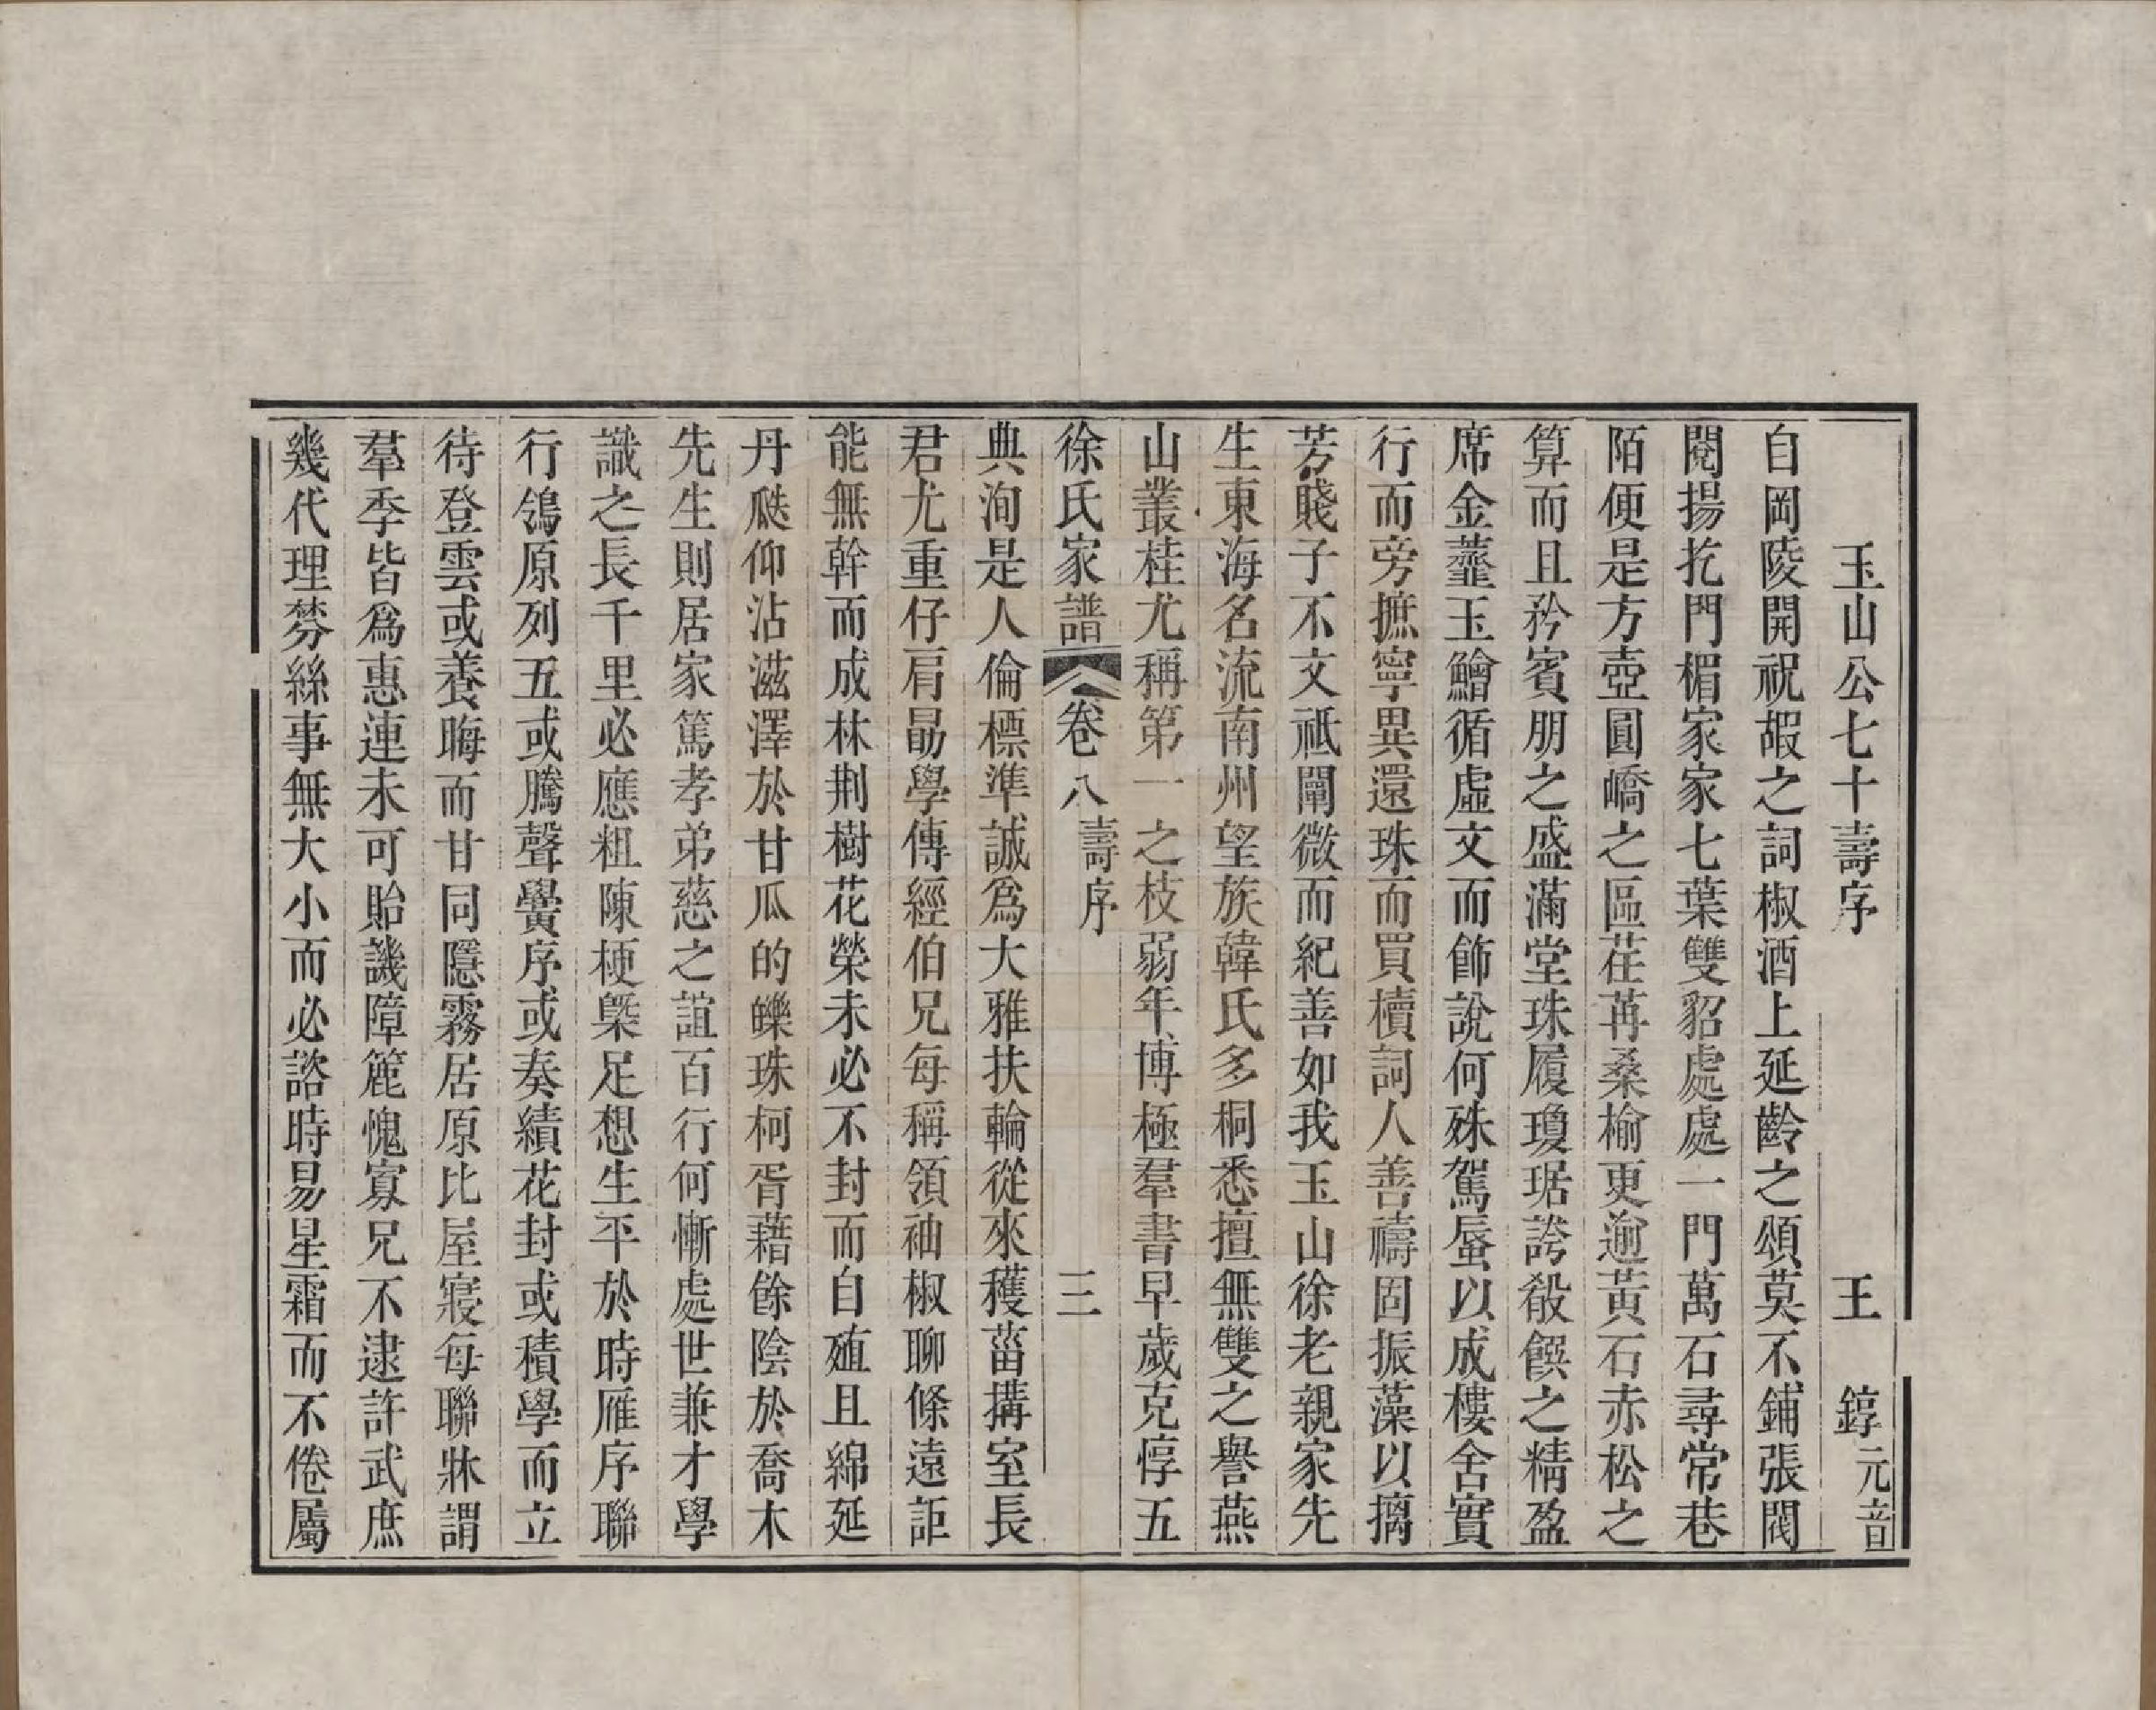 玉山公七十壽序 王錞元音
自岡陵開祝嘏之詞椒酒上延齡之頌莫不鋪張閥
閱揚扢門楣家家七葉雙貂處處一門萬石尋常巷
陌便是方壺圓嶠之區荏苒桑榆更逾黃石赤松之
算而且矜賓朋之盛滿堂珠履瓊琚誇殽饌之精盈
席金虀玉鱠循虛文而飾說何殊駕蜃以成樓舍實
行而旁摭寧異還珠而買櫝詞人善禱固振藻以摛
芳賤子不文祗闡微而紀善如我玉山徐老親家先
生東海名流南州望族韓氏多桐悉擅無雙之譽燕
山叢桂尤稱第一之枝弱年博極羣書早歲克惇五
徐氏家譜 卷八 壽序 三
典洵是人倫標準誠爲大雅扶輪從來穫菑搆室長
君尤重仔肩勗學傳經伯兄每稱領袖椒聊條遠詎
能無幹而成林荆樹花榮未必不封而自殖且綿延
丹瓞仰沾滋澤於甘瓜的皪珠柯胥藉餘陰於喬木
先生則居家篤孝弟慈之誼百行何慚處世兼才學
識之長千里必應粗陳梗槩足想生平於時雁序聯
行鴒原列五或騰聲黌序或奏績花封或積學而立
待登雲或養晦而甘同隱霧居原比屋寢每聯牀謂
羣季皆爲惠連未可貽譏障簏愧寡兄不逮許武庶
幾代理棼絲事無大小而必諮時易星霜而不倦屬